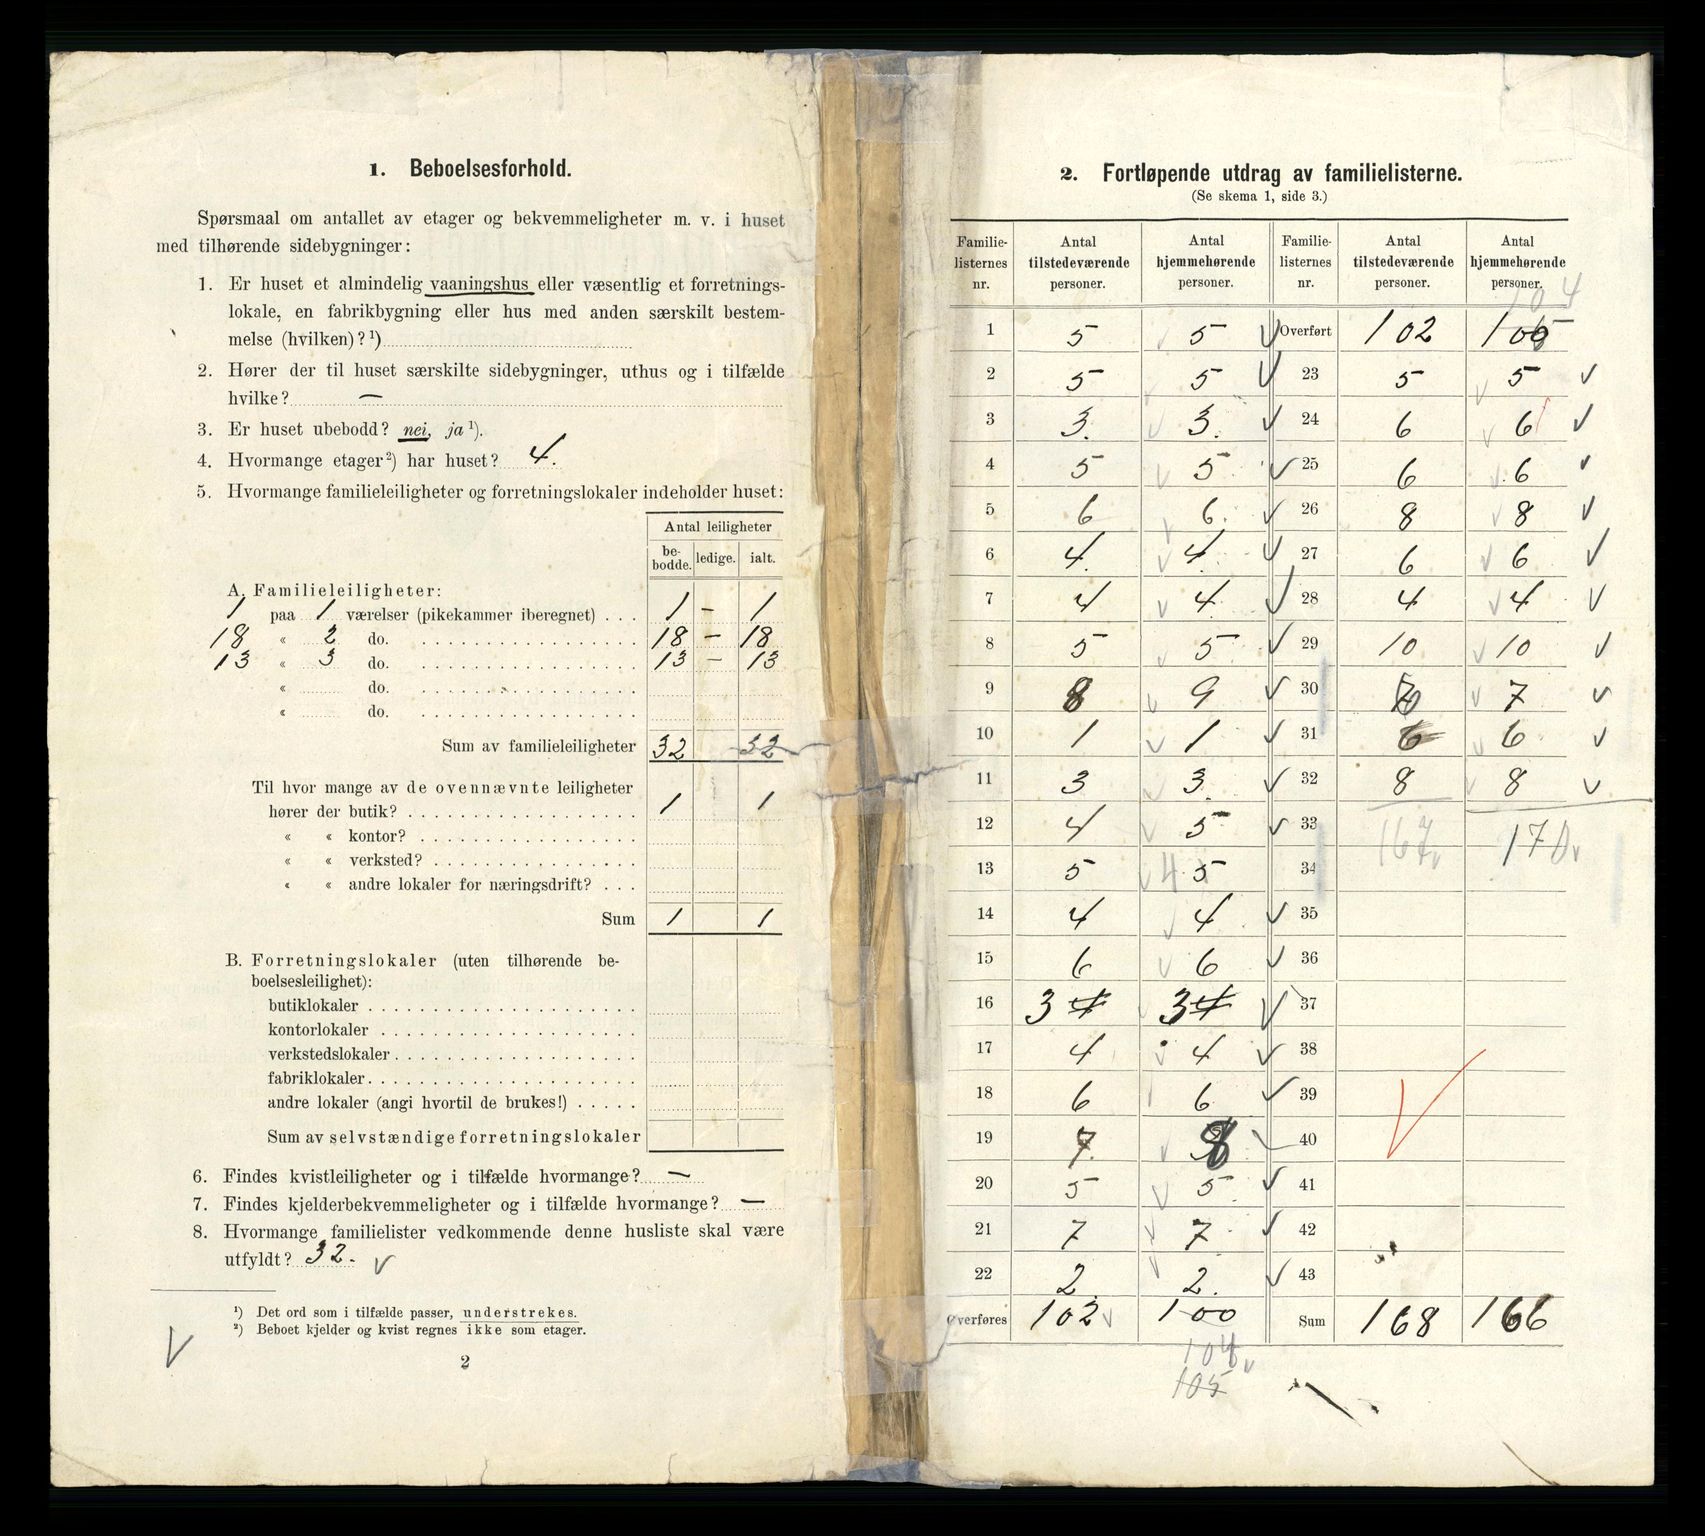 1. Beboelsesforhold.
Spørsmaal om antallet av etager og bekvemmeligheter m. v. i huset
med tilhørende sidebygninger:
1. Er huset et almindelig vaaningshus eller væsentlig et forretnings-
lokale, en fabrikbygning eller hus med anden særskilt bestem-
melse (hvilken)? ¹)
2. Hører der til huset særskilte sidebygninger, uthus og i tilfælde
hvilke? —
3. Er huset ubebodd? nei, ja ¹).
4. Hvormange etager ²) har huset? 4.
5. Hvormange familieleiligheter og forretningslokaler indeholder huset:
Antal leiligheter
be-bodde. ledige. ialt.
A. Familieleiligheter:
1 paa 1 værelser (pikekammer iberegnet) . . . 1 – 1
18 « 2 do. 18 – 18
13 « 3 do. 13 – 13
« do.
« do.
Sum av familieleiligheter 32 32
Til hvor mange av de ovennævnte leiligheter
hører der butik? 1 1
« « kontor?
« « verksted?
« « andre lokaler for næringsdrift? . . .
Sum 1 1
B. Forretningslokaler (uten tilhørende be-
boelsesleilighet):
butiklokaler
kontorlokaler
verkstedslokaler
fabriklokaler
andre lokaler (angi hvortil de brukes!)
Sum av selvstændige forretningslokaler
6. Findes kvistleiligheter og i tilfælde hvormange? —
7. Findes kjelderbekvemmeligheter og i tilfælde hvormange? —
8. Hvormange familielister vedkommende denne husliste skal være
utfyldt? 32.
¹) Det ord som i tilfælde passer, understrekes.
²) Beboet kjelder og kvist regnes ikke som etager.
2
2. Fortløpende utdrag av familielisterne.
(Se skema 1, side 3.)
Familie-listernes nr. Antal tilstedeværende personer. Antal hjemmehørende personer. Familie-listernes nr. Antal tilstedeværende personer. Antal hjemmehørende personer.
104
1 5 5 Overført 102 100
2 5 5 23 5 5
3 3. 3. 24 6 6
4 5 5 25 6 6
5 6 6. 26 8 8
6 4. 4. 27 6 6
7 4 4. 28 4 4
8 5 5 29 10 10
9 8 9 30 7 7
10 1 1 31 6 6
11 3 3. 32 8 8
12 4 5 33 167 170
13 5 4 5 34
14 4 4 35
15 6 6 36
16 3 4 3 4 37
17 4 4 38
18 6 6 39
19 7. 8 40
20 5 5. 41
21 7 7. 42
22 2. 2. 43
Overføres 102 100 Sum 168 166
104
105